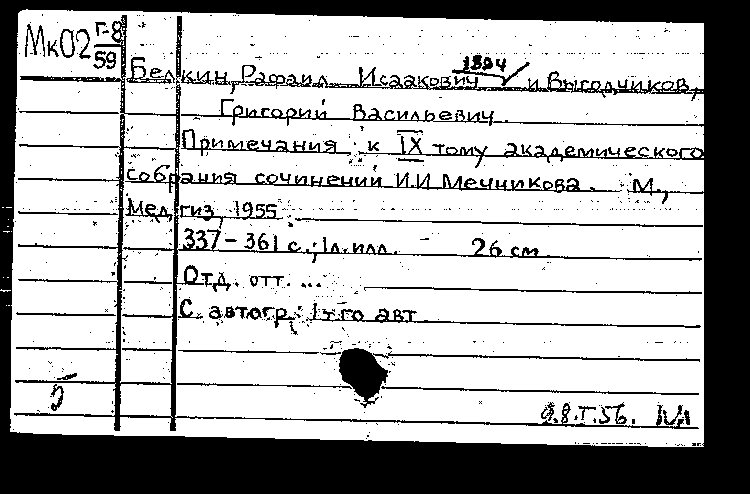 МкО2 Г-8
59
1894
Белкин, Рафаил Исаакович и Выгодчиков,
Григорий Васильевич.
Примечания к IX тому академического
собрания сочинений И.И Мечникова. М.,
Медгиз, 1955.
337-361 с.; 1л. илл. 26 см.
Отд. отт. ...
С автогр. 1-го авт.